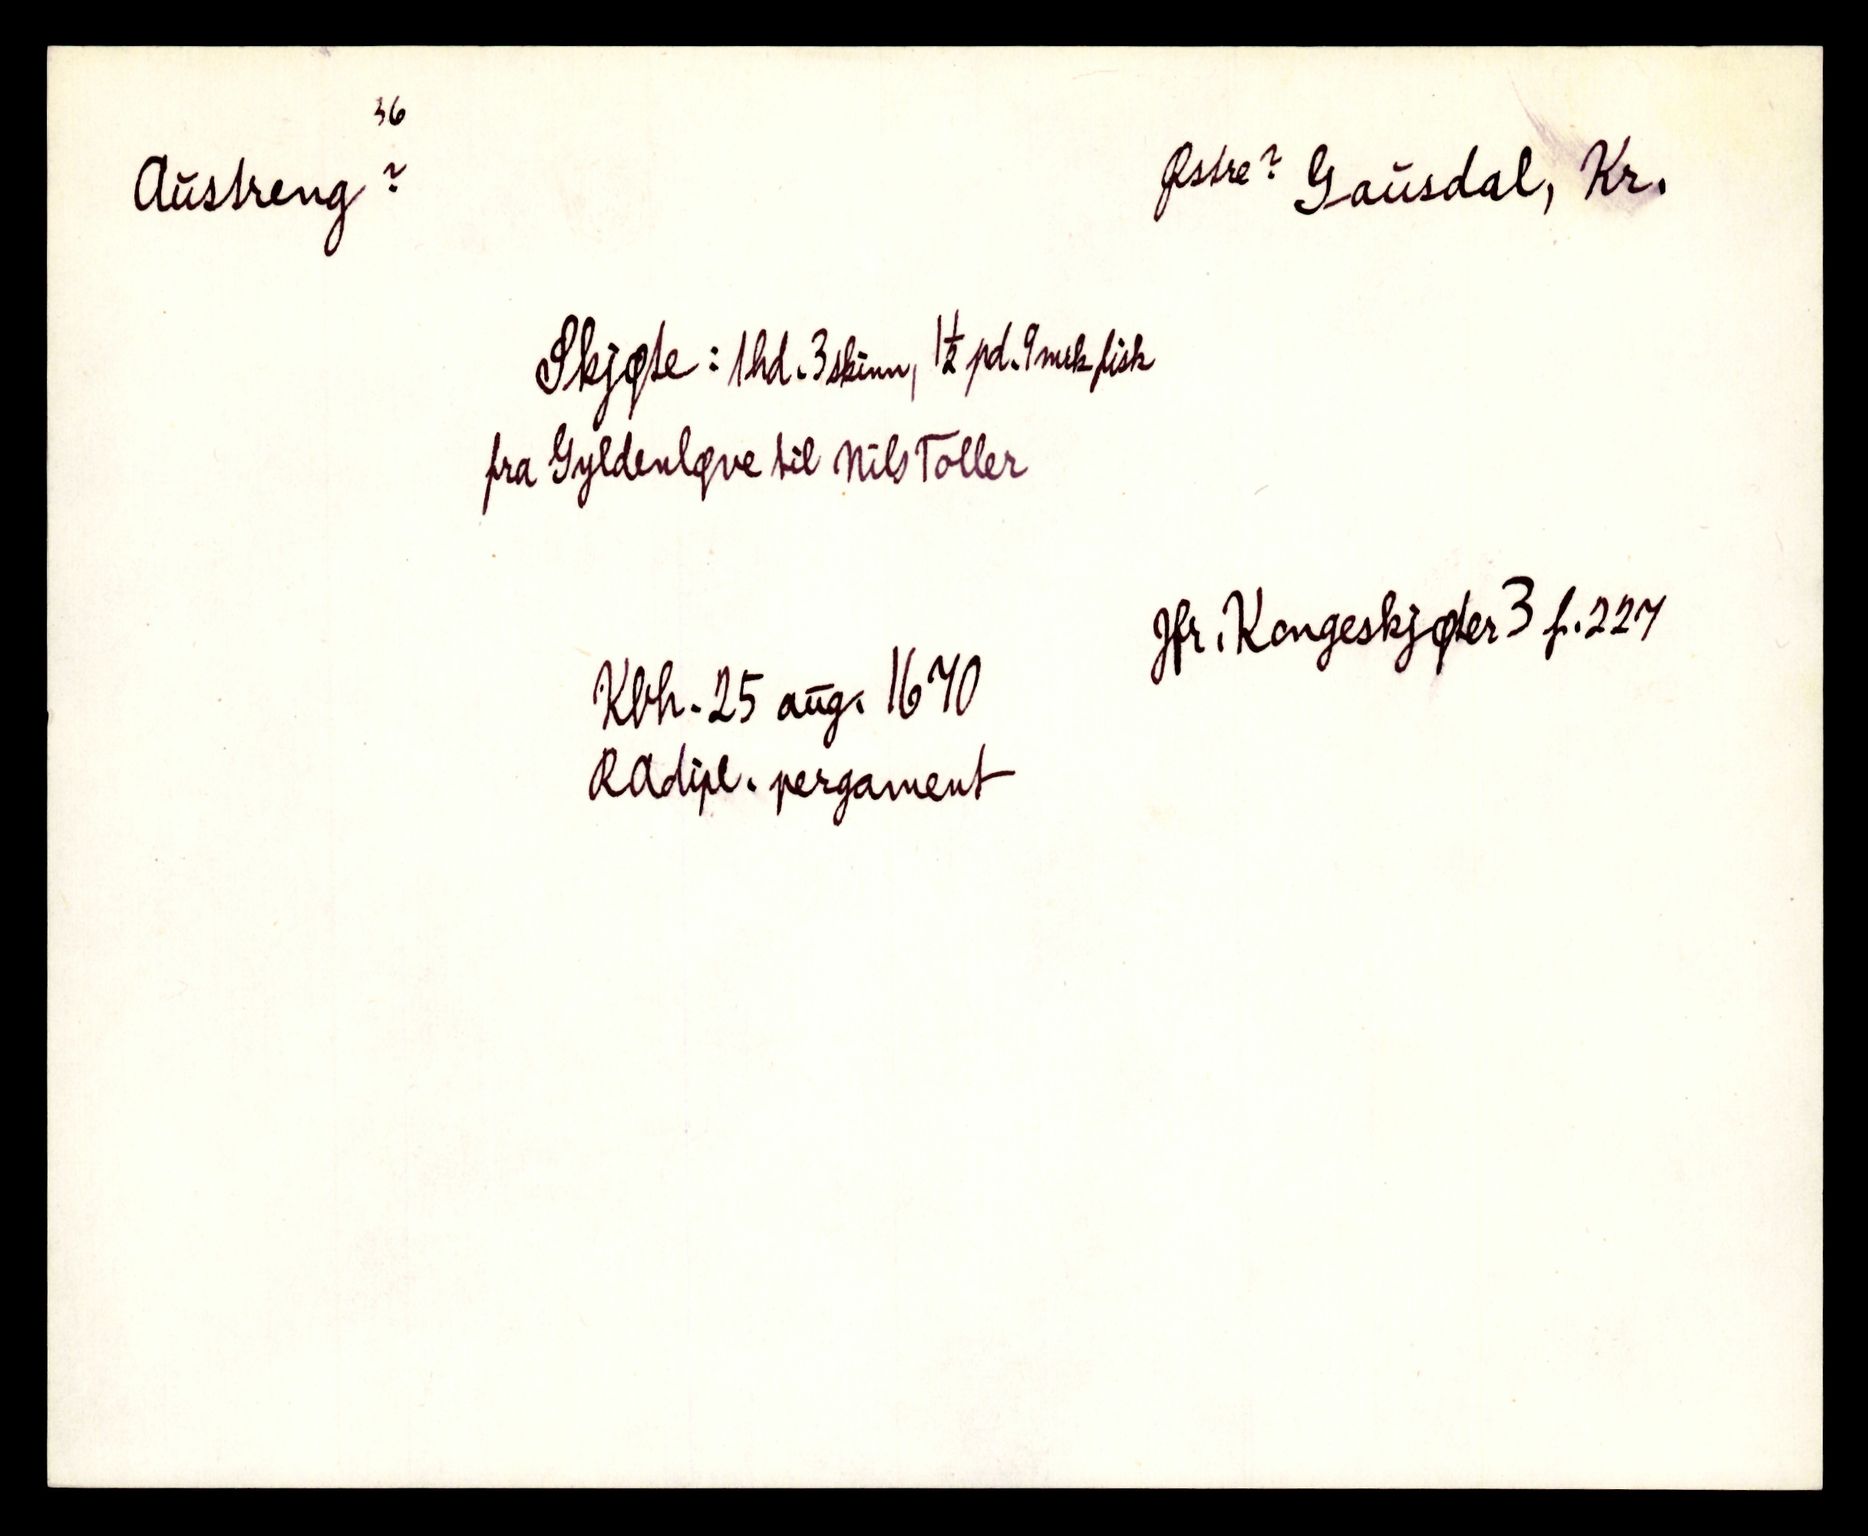 36
Austreng ?
Østre ? Gausdal, Kr.
Skjøte : 1 hd. 3 skinn, 1½ pd. 9 mrk fisk
fra Gyldenløve til Nils Toller
Jfr. Kongeskjøter 3 f. 227
Kbh. 25 aug. 1670
RAdipl. pergament